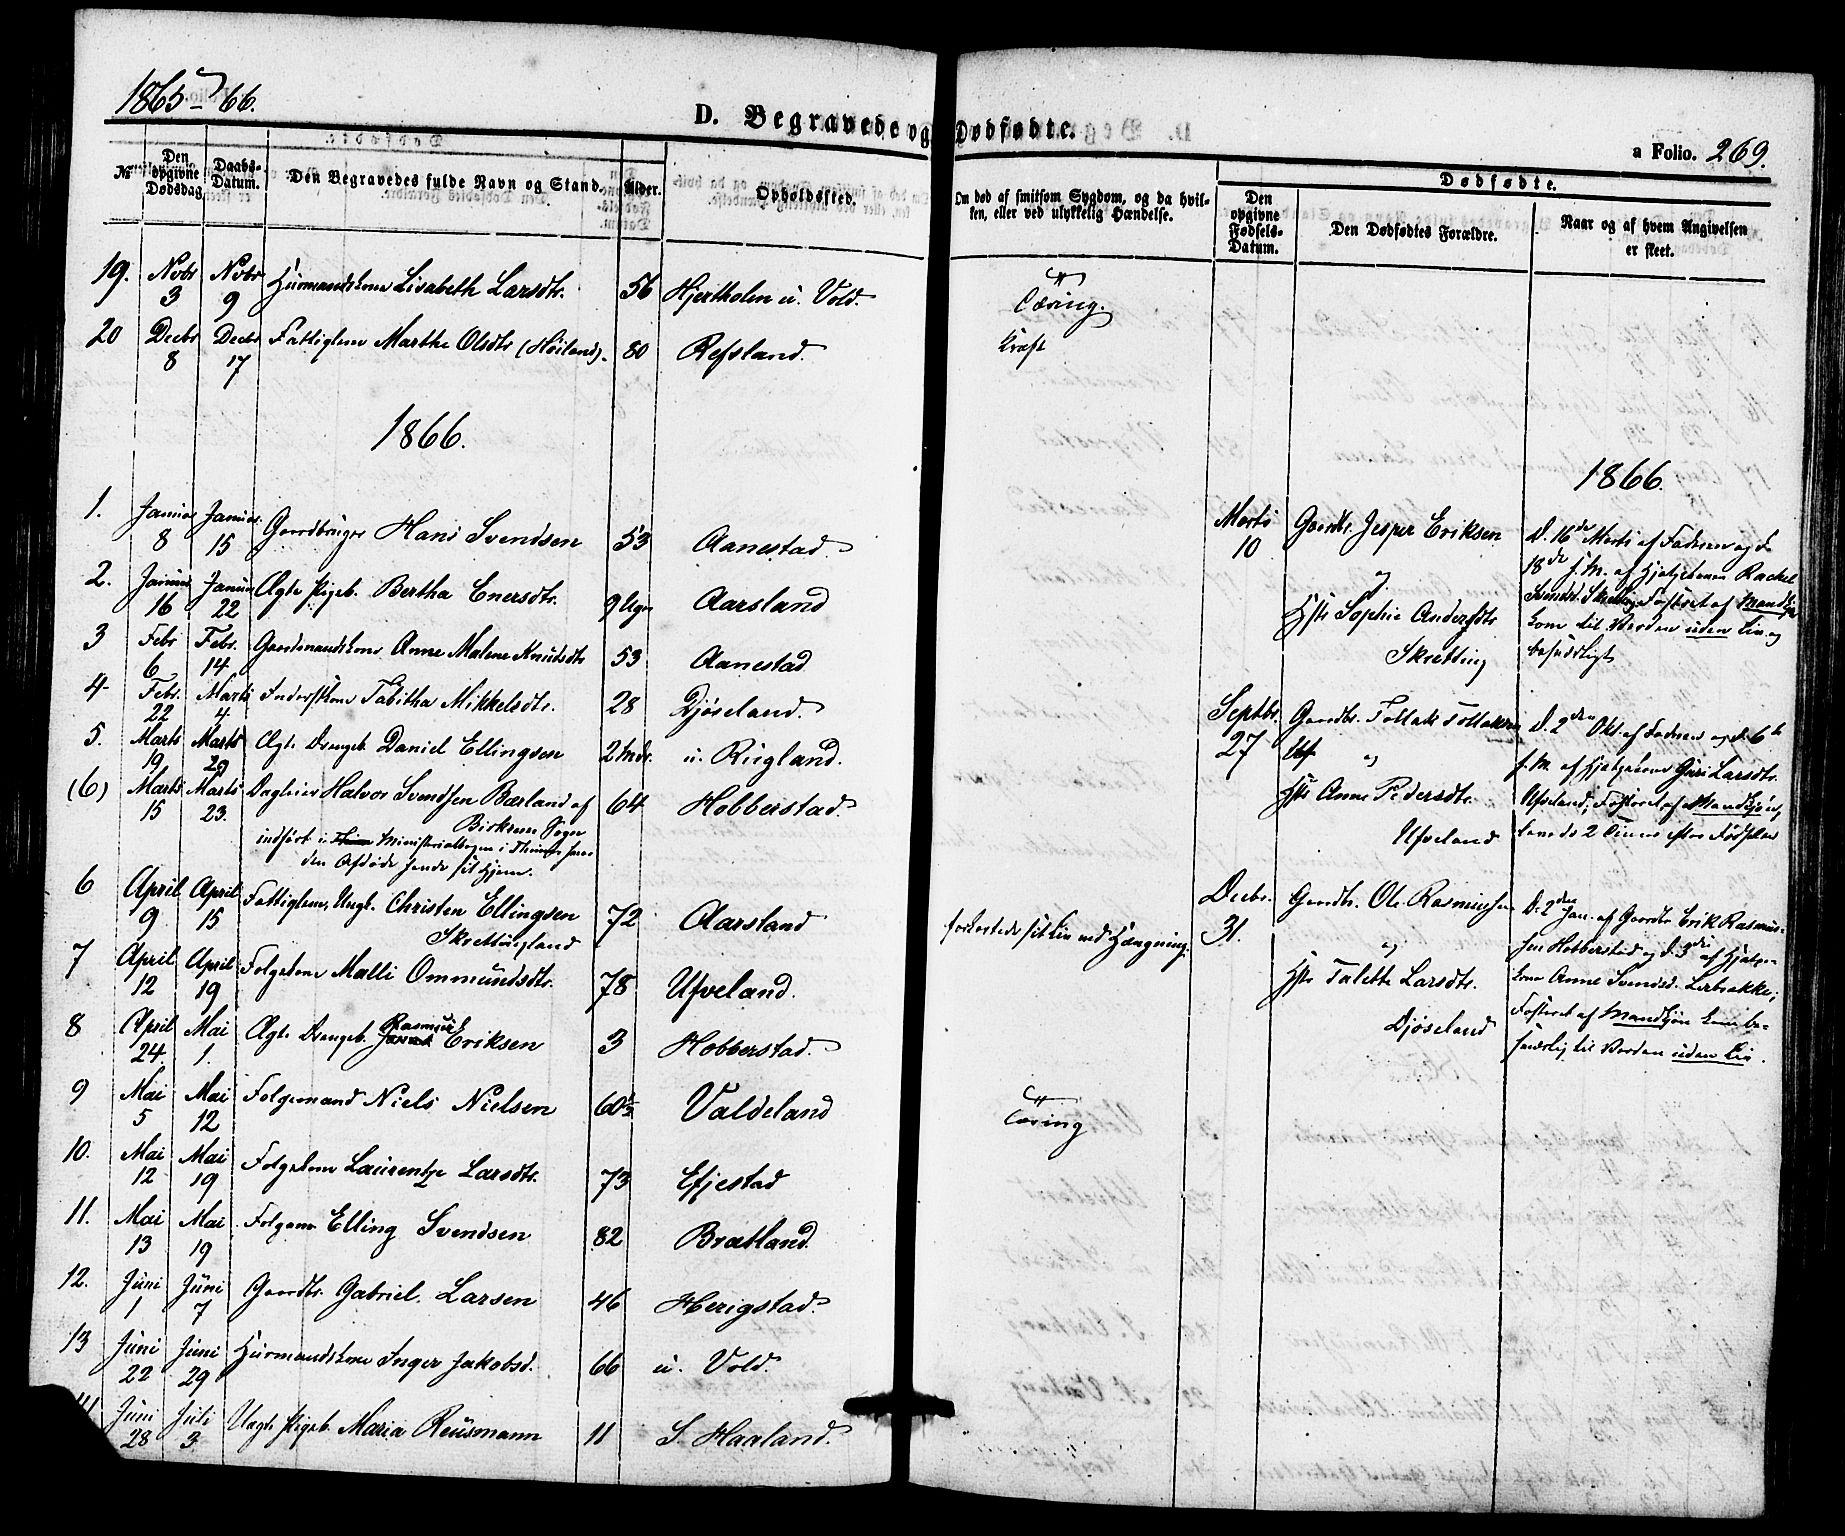 1865-66.
D. Begravede og Dødfødte.
a Folio. 269.
№
Den opgivne Dødsdag
Daabs-Datum.
Den Begravedes fulde Navn og Stand.
Alder.
Opholdssted.
Om død af smitsom Sygdom, og da hvilken, eller ved ulykkelig Hændelse.
Dødfødte.
Den opgivne Fødsels-Datum.
Den Dødfødtes Forældre.
Naar og af hvem Angivelsen er skeet.
19. Novbr 3 Novbr 9 Huusmandskone Lisabeth Larsdtr. 56 Hjertholen u. Vold. Tæring.
20 Decbr 8 Decbr 17 Fattiglem Marthe Olsdtr (Høiland). 80 Refsland. Kræft
1866.
1. Januar 8 Januar 15 Gaardbruger Hans Svendsen 53 Aanestad.
2. Januar 16 Januar 22 Ægte Pigeb. Bertha Enersdtr. 9 Uger Aarsland
3 Febr 6 Febr. 14 Gaardmandskone Anne Malene Knudsdtr 53 Aanestad
4 Febr. 22 Marts 4 Inderstkone Tabitha Mikkelsdtr. 28 Djøseland.
5. Marts 19 Marts 29 Ægte Drengeb. Daniel Ellingsen 2 Mdr. u. Rugland.
(6) Marts 15 Marts 23. Dagleier Halvor Svendsen Bærland af 64 Hobberstad.
Birkrem Sogn
indført i Ministerialbogen i
den Afdøde havde sit Hjem.
6 April 9 April 15 Fattiglem, Ungk. Christen Ellingsen 72 Aarsland forkortede sit Liv ved Hængning.
Skrettingland
7 April 12 April 19 Folgekone Malli Ommundsdtr. 78 Ufveland.
8 April 24 Mai 1. Ægte Drengeb. Rasmus Eriksen 3 Hobberstad.
9 Mai 5 Mai 12 Folgemand Niels Nielsen 60½ Valdeland Tæring
10. Mai 12 Mai 19 Folgekone Laurentze Larsdtr. 73 Efjestad
11. Mai 13 Mai 19 Folgem. Elling Svendsen 82 Bratland.
12. Juni 1 Juni 7 Gaardbr. Gabriel Larsen 46 Herigstad.
13 Juni 22 Juni 29 Huusmandskone Inger Jakobsd. 66 u. Vold.
Juni 28 Juli 3 Uægte Pigeb. Maria Reusmann 11 S. Haaland.
1866.
Marts 10 Gaardbr. Jesper Eriksen
og
Hstr Sophie Andersdtr
Skretting
D. 16de Marts af Faderen og d.
18de s. M. af Hjælpekonen Rachel
Svendsd. Skretting. Fostret af Mandkjøn
kom til Verden uden Liv og
besværligt
Septbr. 27 Gaardbr. Tollak Tollaksen
og
Hstr Anne Pedersdtr.
Ufveland
D. 2den Okt. af Faderen og d. 6te
s. M. af Hjælpekone Guri Larsdtr.
Ufveland; Fosteret af Mandkjøn,
levede 2 Timer efter Fødselen
Decbr. 31. Gaardbr. Ole Rasmussen
og
Hstr Talette Larsdtr.
Djøseland
D. 2den Jan. af Gaardbr Erik Rasmus-
sen Hobberstad og d. 3de af Hjælpe-
kone Anne Svendsd. Lerbrække;
Fosteret af Mandkjøn kom be-
sværlig til Verden uden Liv.